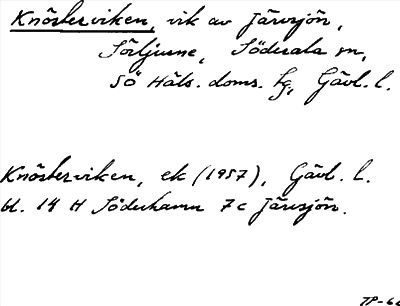 Knösterviken, vik av Järvsjön,
Sörljusne, Söderala sn,
SÖ Häls. doms. fg, Gävl. l.
Knösterviken, ek (1957), Gävl. l.
bl. 14 H Söderhamn 7c Järvsjön.
TP-66